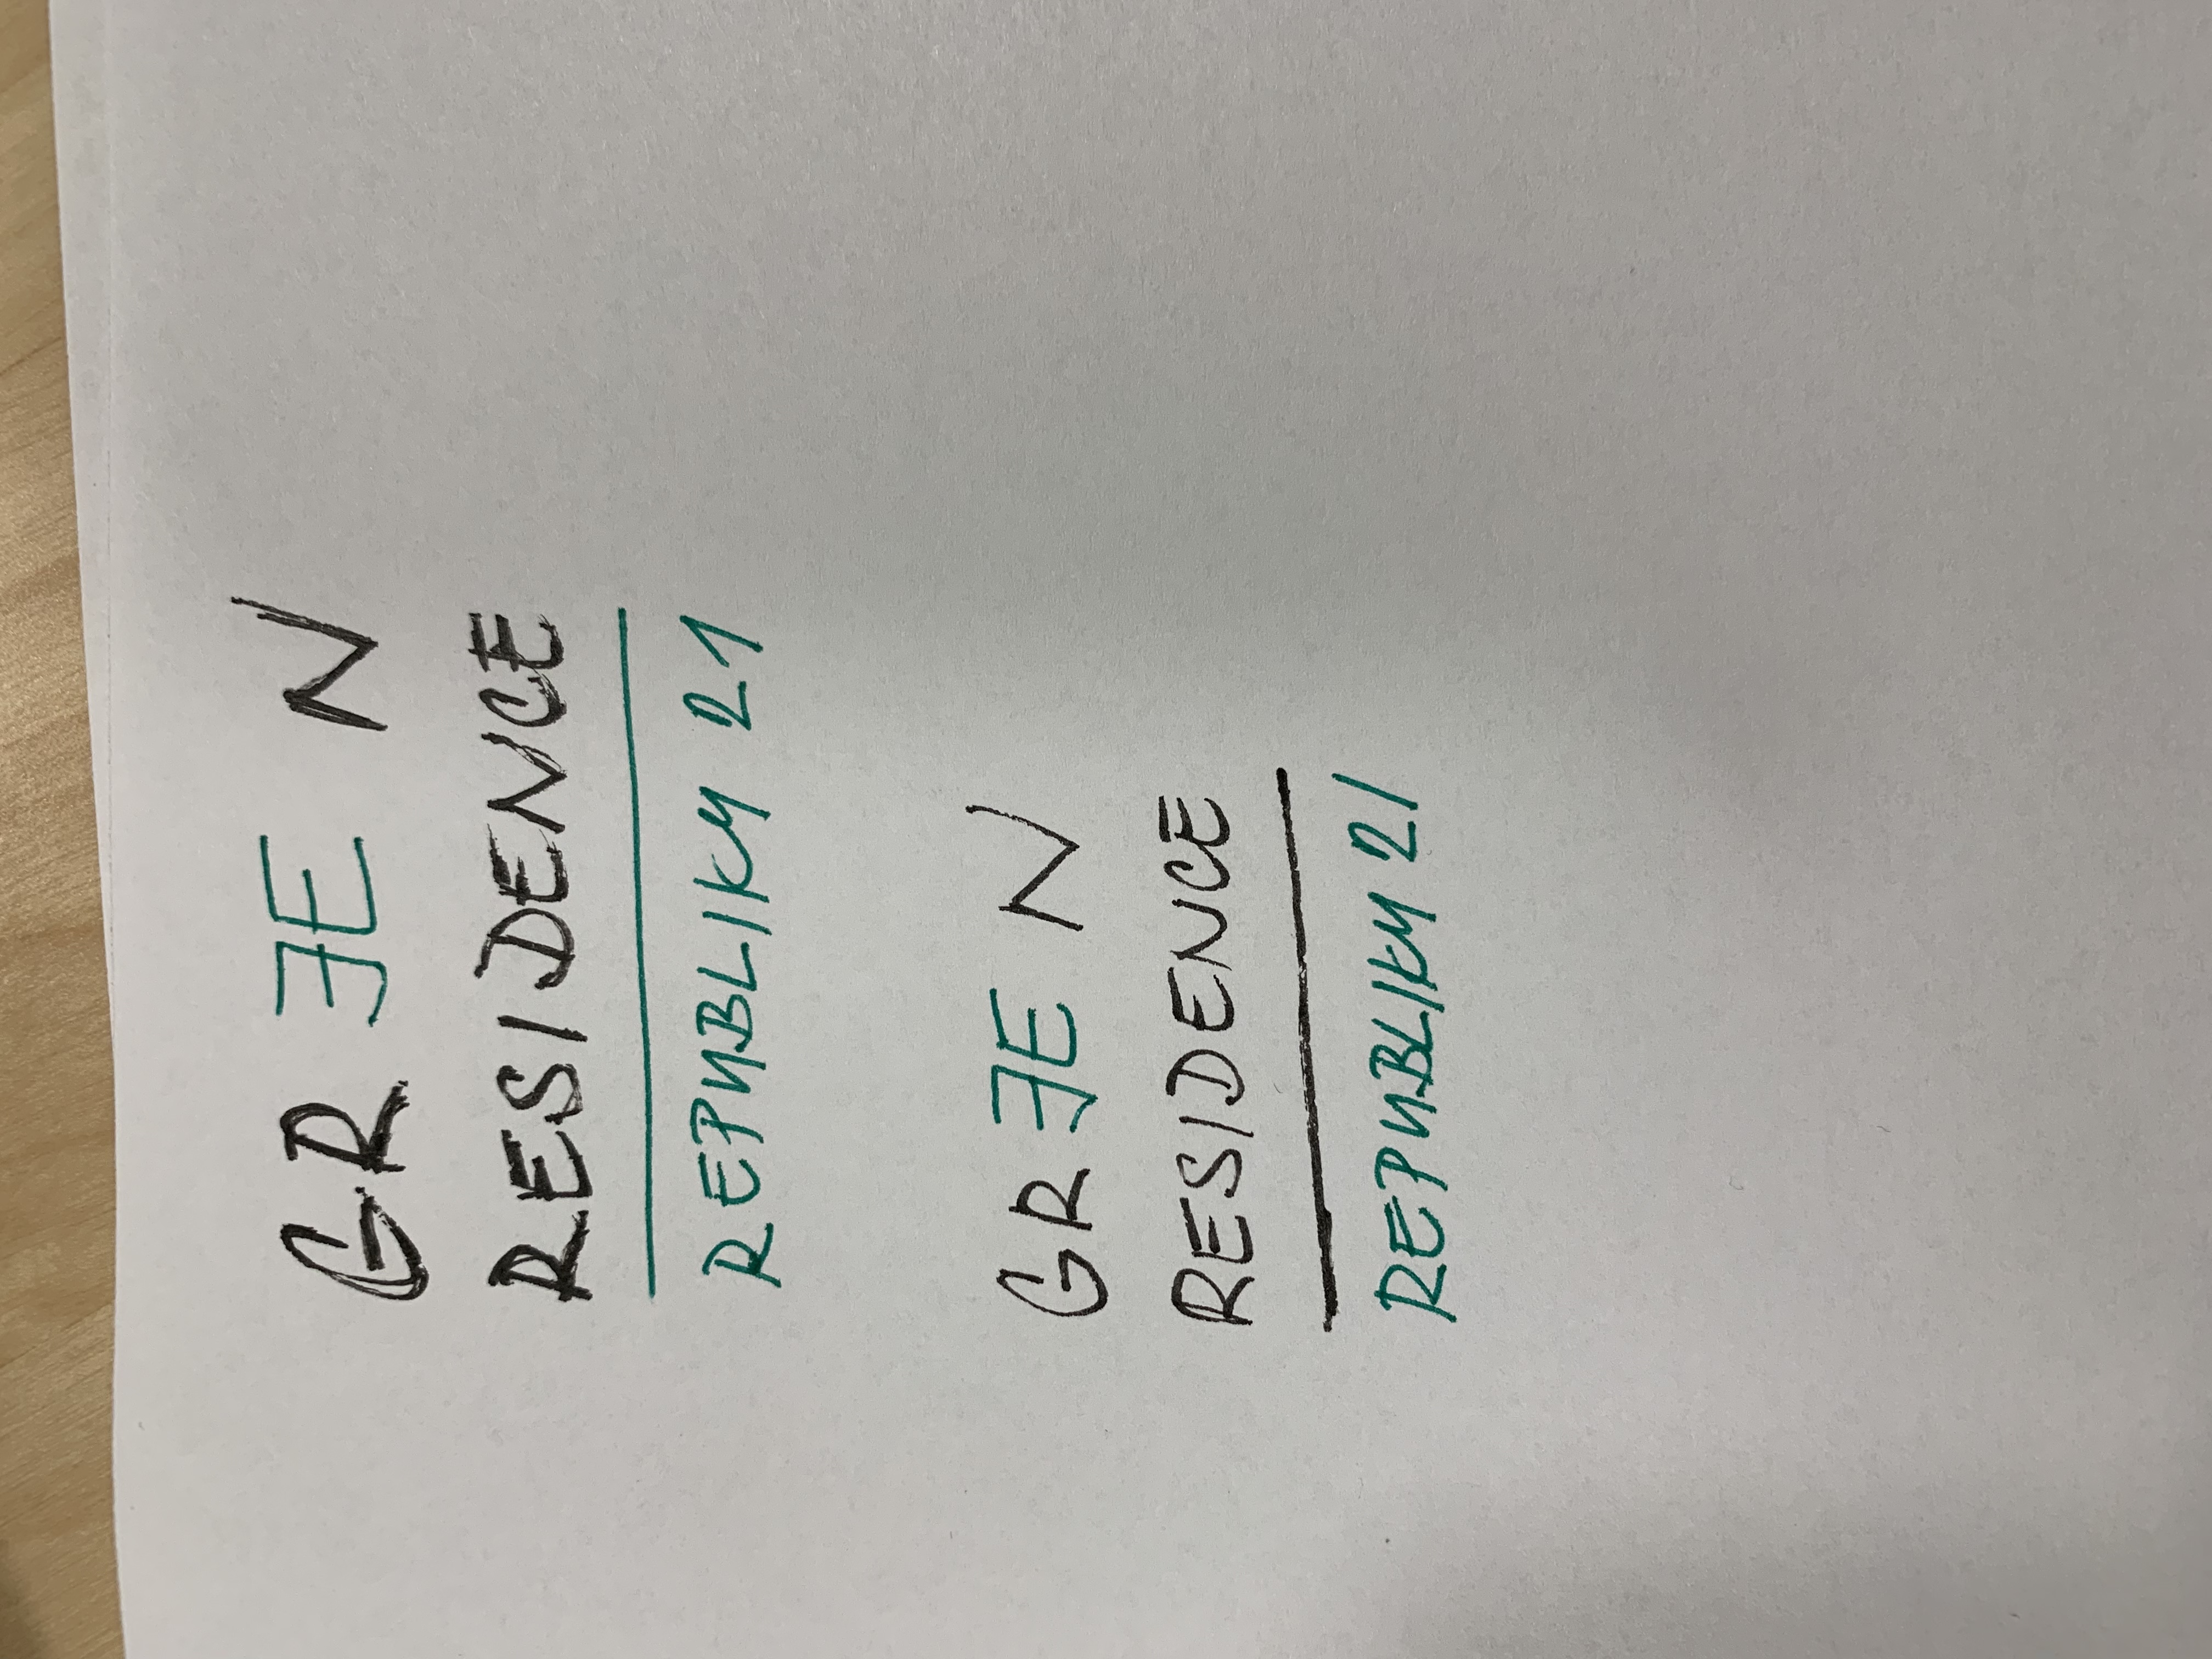 GRƎEN
RESIDENCE
REPUBLIKY 21
GRƎEN
RESIDENCE
REPUBLIKY 21